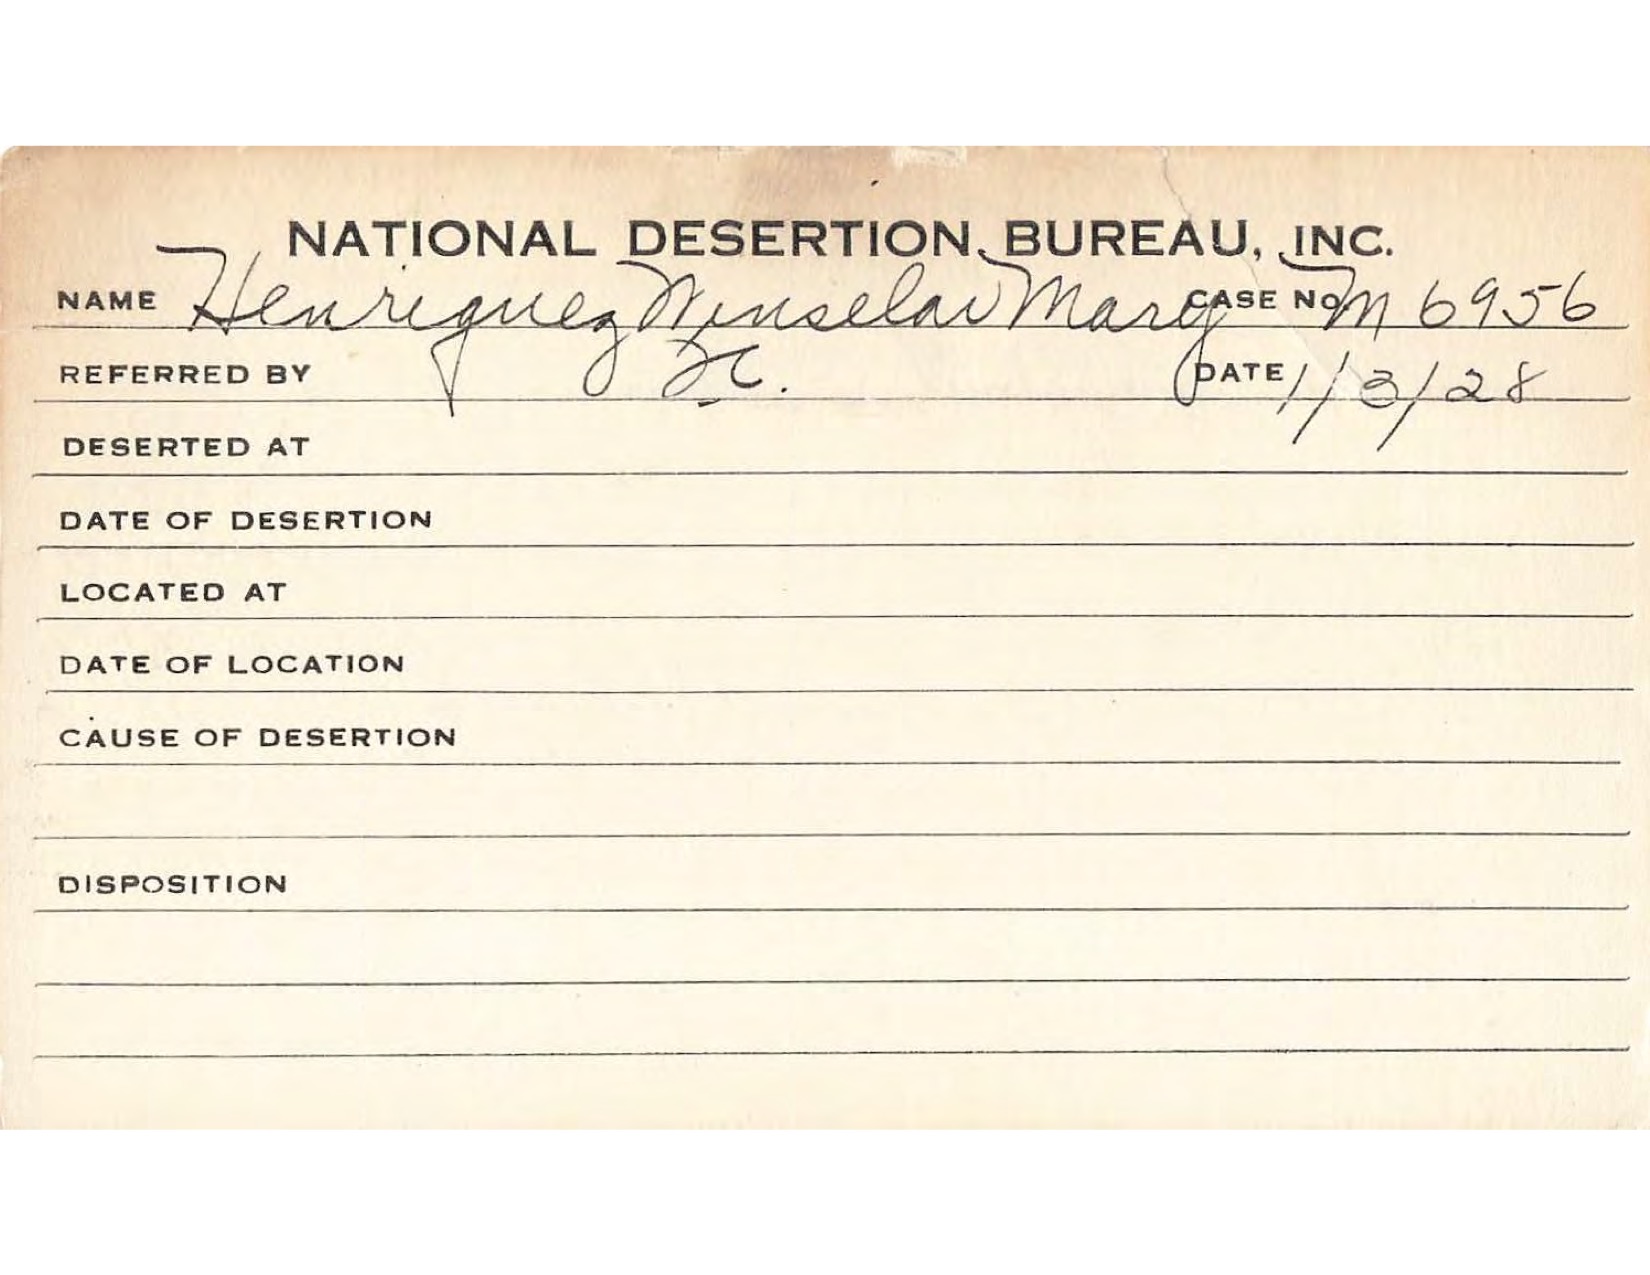 NATIONAL DESERTION BUREAU, INC.
NAME Henriquez Winselav Mary CASE NO M 6956
REFERRED BY DATE 1/3/28
DESERTED AT
DATE OF DESERTION
LOCATED AT
DATE OF LOCATION
CAUSE OF DESERTION
DISPOSITION